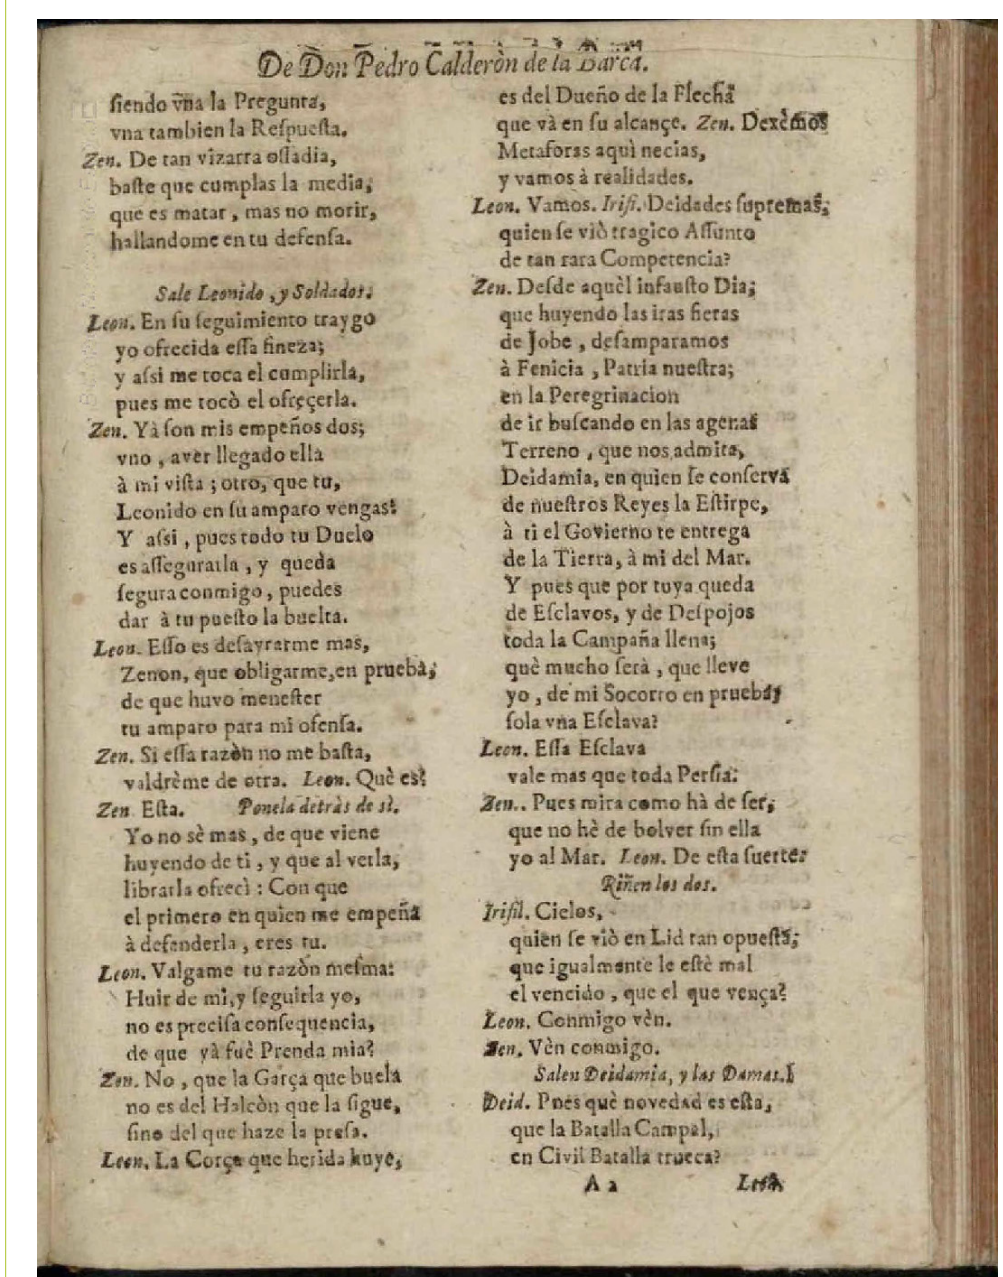 De Don Pedro Calderòn de la Barca.
siendo vna la Pregunta,
vna tambien la Respuesta.
Zen. De tan vizarra ossadia,
baste que cumplas la media,
que es matar, mas no morir,
hallandome en tu defensa.
Sale Leonido, y Soldados.
Leon. En su seguimiento traygo
yo ofrecida essa fineza;
y assi me toca el cumplirla,
pues me tocò el ofreçerla.
Zen. Yà son mis empeños dos;
vno, aver llegado ella
à mi vista; otro, que tu,
Leonido en su amparo vengas:
Y assi, pues todo tu Duelo
es assegurarla, y queda
segura conmigo, puedes
dar à tu puesto la buelta.
Leon. Esso es desayrarme mas,
Zenon, que obligarme, en prueba,
de que huvo menester
tu amparo para mi ofensa.
Zen. Si essa razòn no me basta,
valdrème de otra. Leon. Què es?
Zen Esta. Ponela detràs de sì.
Yo no sè mas, de que viene
huyendo de ti, y que al verla,
librarla ofrecì: Con que
el primero en quien me empeña
à defenderla, eres tu.
Leon. Valgame tu razòn mesma:
Huir de mi, y seguirla yo,
no es precisa consequencia,
de que yà fuè Prenda mia?
Zen. No, que la Garça que buela
no es del Halcòn que la sigue,
sino del que haze la presa.
Leon. La Corça que herida huye,
es del Dueño de la Flecha
que và en su alcançe. Zen. Dexèmos
Metaforas aquì necias,
y vamos à realidades.
Leon. Vamos. Irifi. Deidades supremas,
quien se viò tragico Assunto
de tan rara Competencia?
Zen. Desde aquèl infausto Dia;
que huyendo las iras fieras
de Jobe, desamparamos
à Fenicia, Patria nuestra;
en la Peregrinacion
de ir buscando en las agenas
Terreno, que nos admita,
Deidamia, en quien se conserva
de nuestros Reyes la Estirpe,
à ti el Govierno te entrega
de la Tierra, à mi del Mar.
Y pues que por tuya queda
de Esclavos, y de Despojos
toda la Campaña llena;
què mucho serà, que lleve
yo, de mi Socorro en prueba,
sola vna Esclava?
Leon. Essa Esclava
vale mas que toda Persia.
Zen.. Pues mira como hà de ser,
que no hè de bolver sin ella
yo al Mar. Leon. De esta suerte:
Riñen los dos.
Irifil. Cielos,
quien se viò en Lid tan opuesta,
que igualmente le estè mal
el vencido, que el que vença?
Leon. Conmigo vèn.
Zen. Vèn conmigo.
Salen Deidamia, y las Damas.
Deid. Pues què novedad es esta,
que la Batalla Campal,
en Civil Batalla trueca?
A a Leon